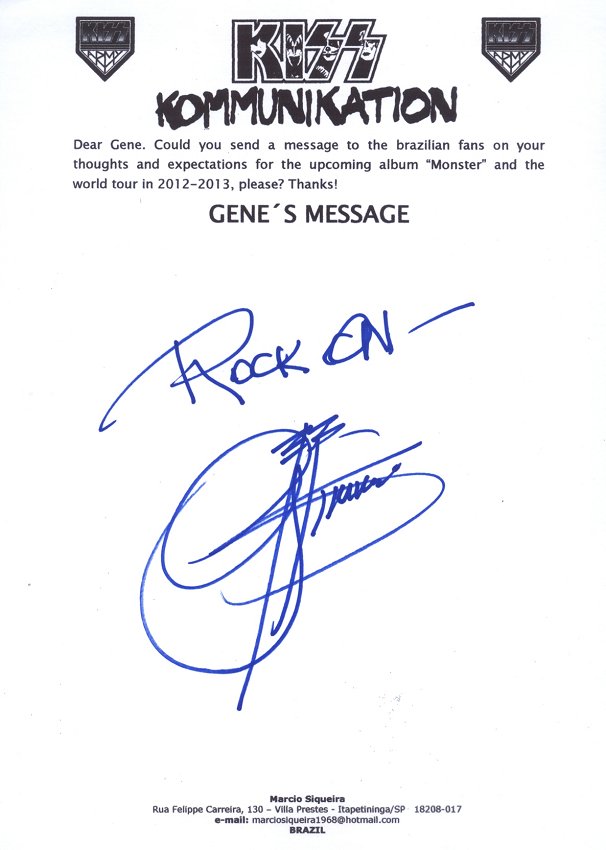 KISS ARMY
KISS
KISS ARMY
KOMMUNIKATION
Dear Gene. Could you send a message to the brazilian fans on your
thoughts and expectations for the upcoming album “Monster” and the
world tour in 2012-2013, please? Thanks!
GENE´S MESSAGE
ROCK ON -
Marcio Siqueira
Rua Felippe Carreira, 130 – Villa Prestes - Itapetininga/SP 18208-017
e-mail: marciosiqueira1968@hotmail.com
BRAZIL